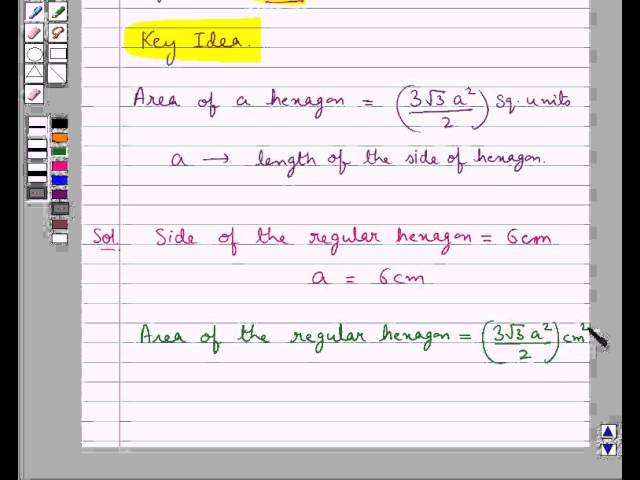 Key Idea.
Area of a hexagon = (3√3 a²/2) sq. units
a → length of the side of hexagon.
Sol. Side of the regular hexagon = 6cm
a = 6cm
Area of the regular hexagon = (3√3 a²/2) cm²